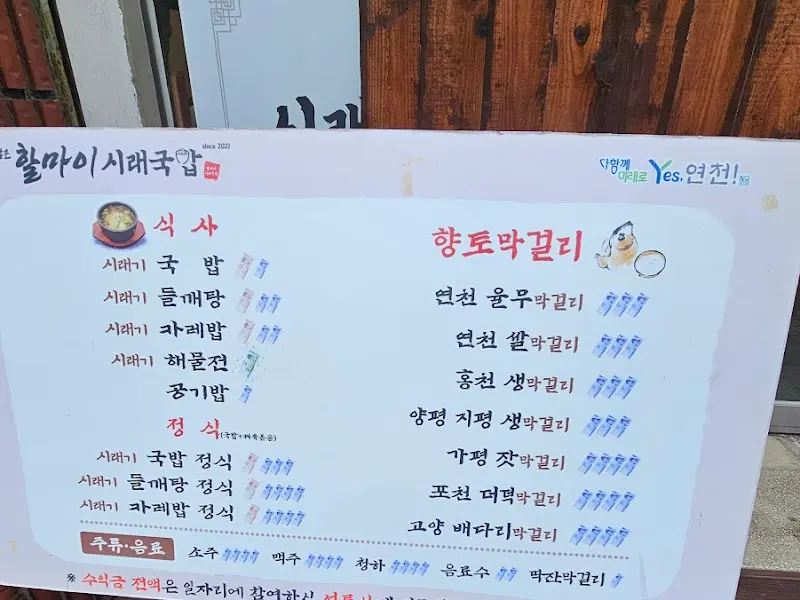 할마이 시래국밥 since 2021
다함께 미래로 Yes, 연천!
식사
시래기 국밥
시래기 들깨탕
시래기 카레밥
시래기 해물전
공기밥
정식 (국밥+제육볶음)
시래기 국밥 정식
시래기 들깨탕 정식
시래기 카레밥 정식
향토막걸리
연천 율무막걸리
연천 쌀막걸리
홍천 생막걸리
양평 지평 생막걸리
가평 잣막걸리
포천 더덕막걸리
고양 배다리막걸리
주류·음료 소주 맥주 청하 음료수 딱잔막걸리
※ 수익금 전액은 일자리에 참여하신